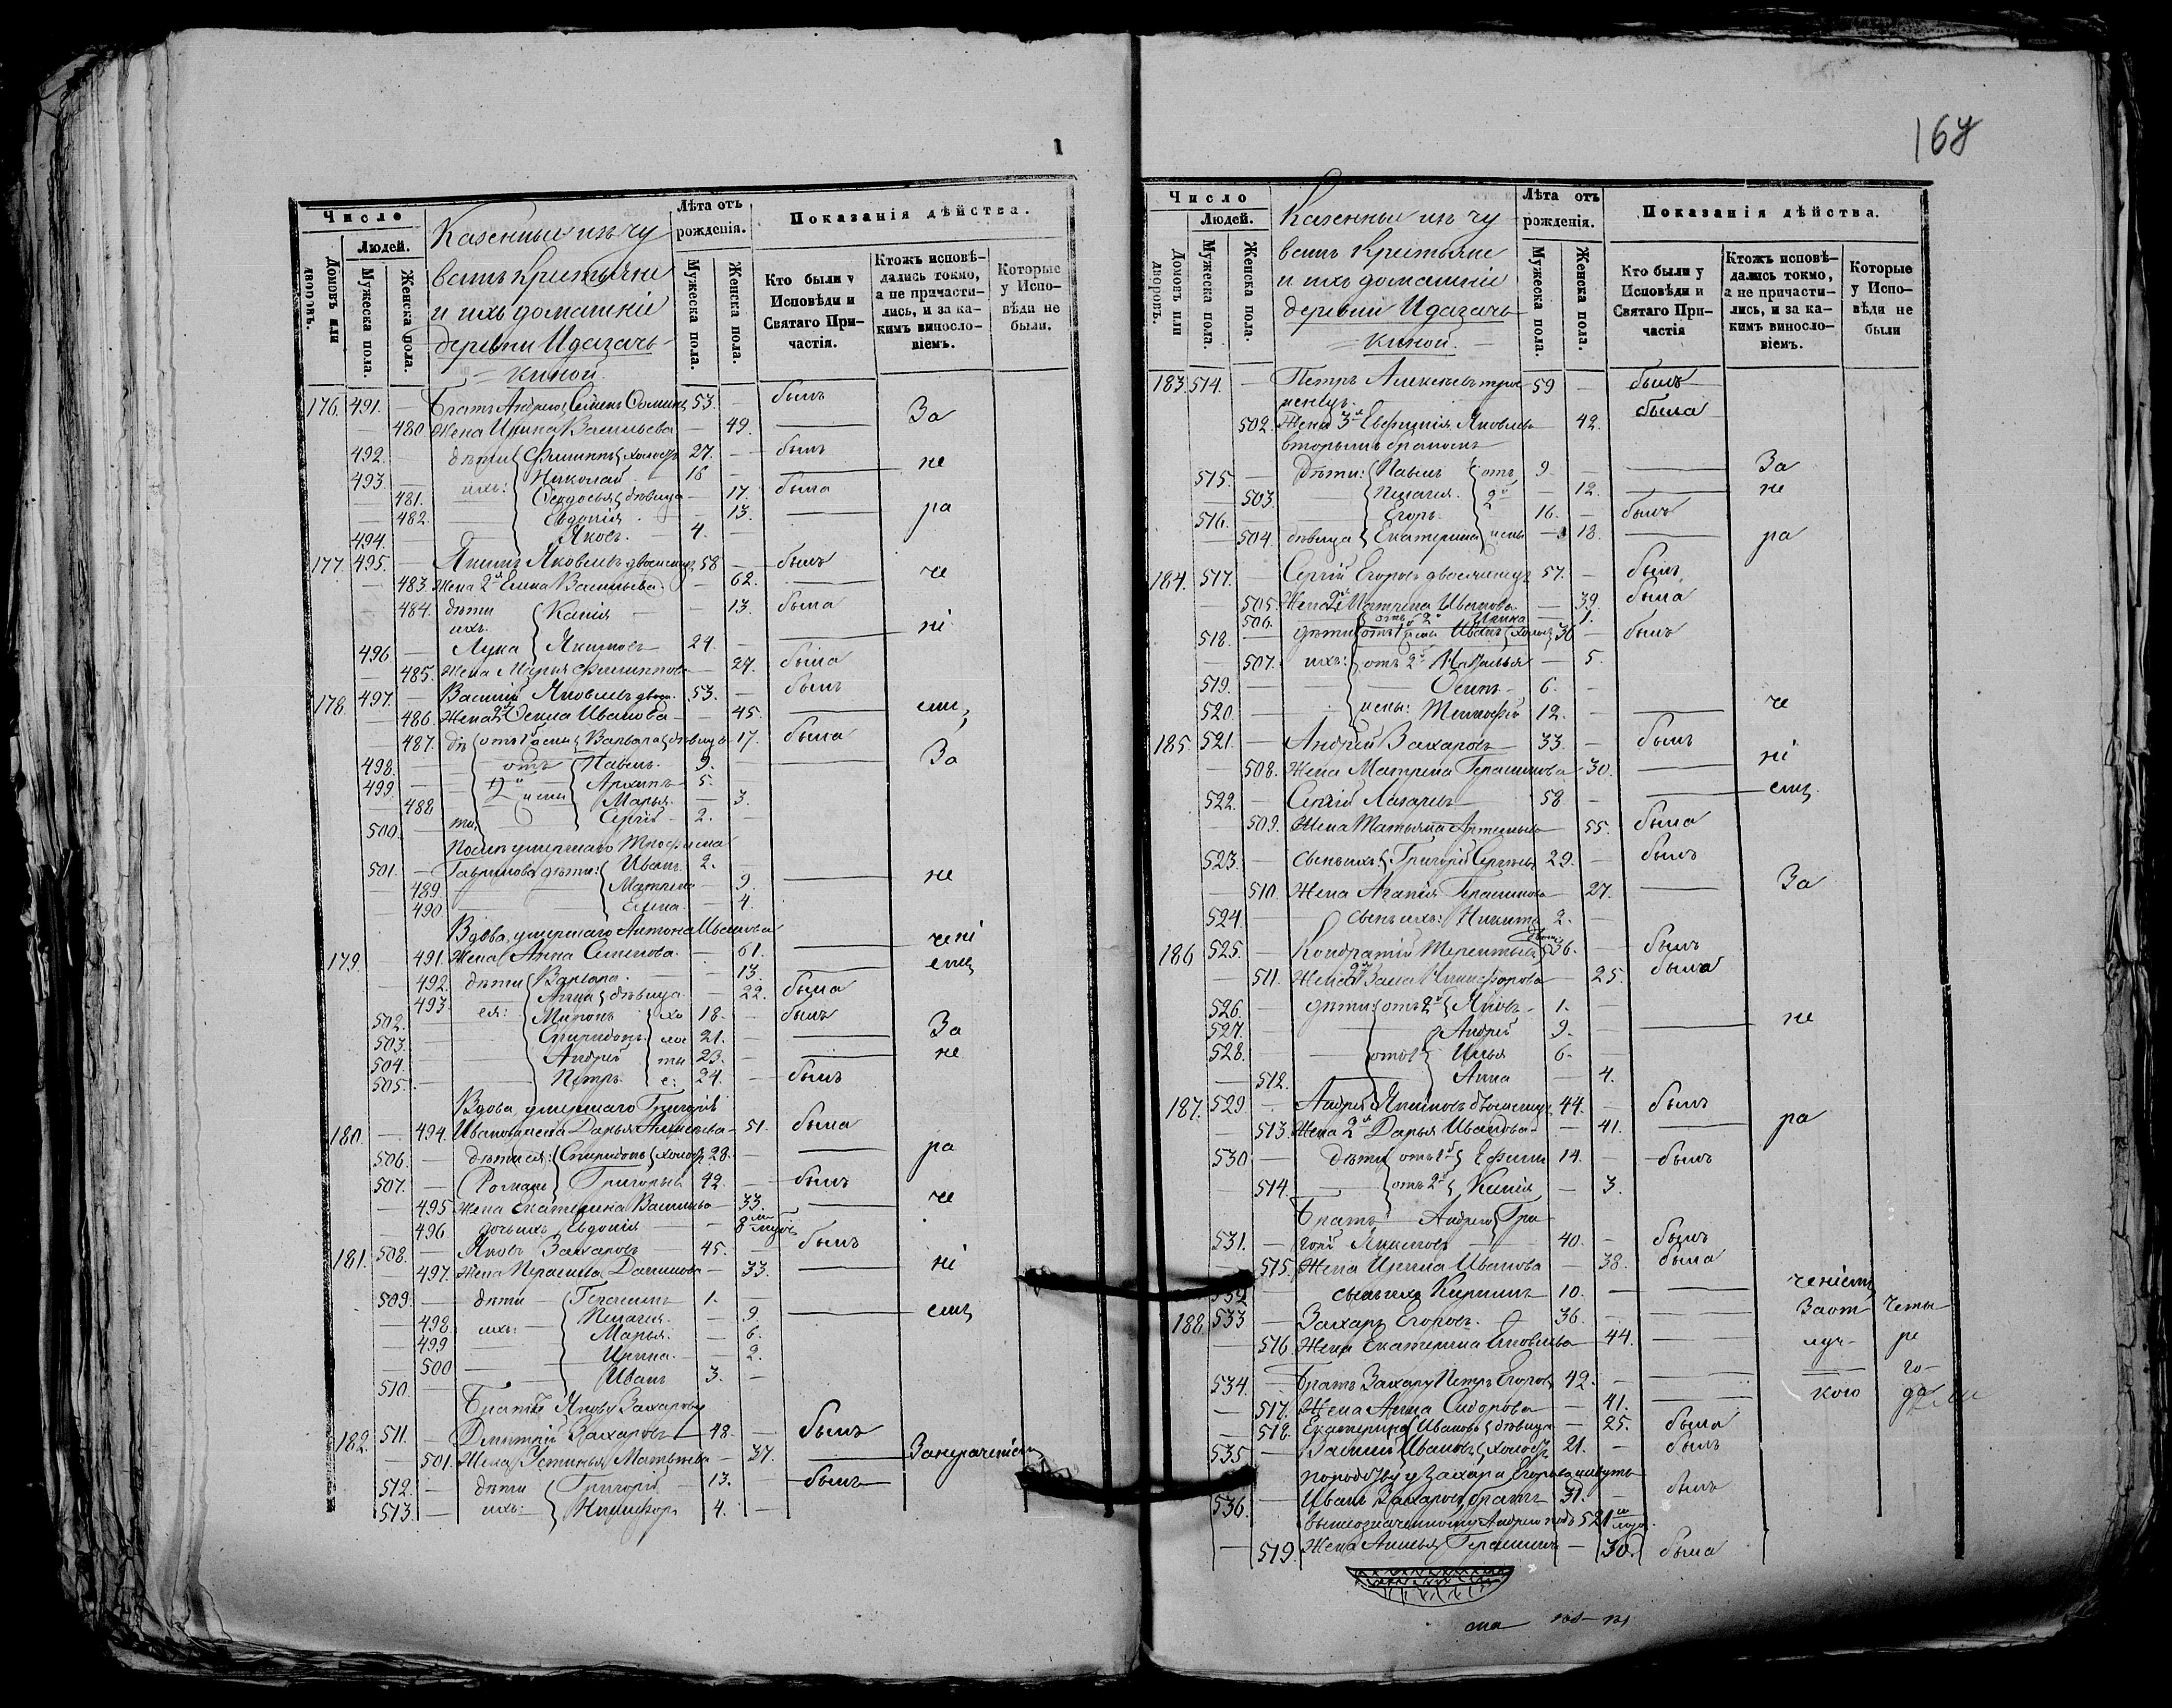 1
Число
Людей.
Домовъ или дворовъ.
Мужеска пола.
Женска пола.
Казенные изъ чу
вашъ крестьяне
и ихъ домашніе
деревни Идагачь-
киной.
Лѣта отъ рожденія.
Мужеска пола.
Женска пола.
Показанія дѣйства.
Кто были у Исповѣди и Святаго Причастія.
Ктожъ исповѣдались токмо, а не причастились, и за какимъ винословіемъ.
Которые у Исповѣди не были.
176. 491. — Братъ Андрею Семенъ 53. — былъ
— 480. Жена Ирина Васильева — 49. — За
492. — дѣти Филиппъ холостъ 27. — былъ
493. — ихъ: Николай 16 — не
— 481. Ѳеодосья дѣвица — 17. была
— 482. Евдокія — 13. — ра
494. — Яковъ. 4. —
177. 495. — Якимъ Яковлевъ двоеженецъ 58 — былъ
— 483. Жена 2я Елена Васильева — 62. — че
— 484. дѣти ихъ. Ксенія — 13. была
496. — Лука Якимовъ 24. — ні
— 485. Жена Марья Филиппова — 27. была
178. 497. — Василій Яковлевъ двое. 53. — былъ
— 486. Жена 2я Иванова — 45. — емъ
— 487. дѣ отъ 1й жены Варвара дѣвица 17. была
498. — отъ Павелъ. 9. — За
499. — 2й жены Архипъ 5. —
— 488 Марья. — 3.
500. — ти Сергѣй 2. —
Послѣ умершаго Трофима
501. — Гаврилова дѣти: Иванъ. 2. —
— 489 Матрена — 9. — не
— 490. Елена. — 4.
Вдова, умершаго Антона Иванова
179. — 491. Жена Анна Семенова. — 61. — чені
— 492. дѣти Варвара. — 13. — емъ
— 493. ея: Анна дѣвица. — 22. была
502. — Миронъ хо 18. — былъ
503. — Спиридонъ. лос 21. — За
504. — Андрей ты 23. — не
505. — Петръ. е: 24. — былъ
Вдова, умершаго Григорія
180. — 494. Иванова жена Дарья — 51. была
506. — дѣти ея: Спиридонъ холостъ 28. — ра
507. — Романъ Григорьевъ 42. — былъ
— 495. Жена Екатерина Васильева — 33. — че
— 496 дочь ихъ Евдокія — 8
181. 508. — Яковъ Захаровъ 45. — былъ
— 497. Жена Данилова — 33. — ні
509. — дѣти Герасимъ 1. —
— 498. ихъ: Пелагея. — 9. — емъ
— 499 Марья. — 6.
— 500 Ирина. — 2.
510. — Иванъ 3. —
Братъ Якову Захарову
182. 511. — Дмитрій Захаровъ 48. — былъ
— 501. Жена Устинья Матвѣева — 37. — Занераченіемъ
512. — дѣти Григорій. 13. — былъ
513. — ихъ: Никифоръ 4. —
Число
Людей.
Домовъ или дворовъ.
Мужеска пола.
Женска пола.
Казенные изъ чу
вашъ крестьяне
и ихъ домашніе
деревни Идагачь-
киной.
Лѣта отъ рожденія.
Мужеска пола.
Женска пола.
Показанія дѣйства.
Кто были у Исповѣди и Святаго Причастія
Ктожъ исповѣдались токмо, а не причастились, и за какимъ винословіемъ.
Которые у Исповѣди не были
183. 514. — Петръ Алексѣевъ трое 59 — былъ
женецъ.
502. Жена 3я Евфимія Яковлева 42. была
вторымъ бракомъ
515. — Дѣти: Павелъ отъ 9. — За
— 503. Пелагея. 2й — 12. — не
516. — Егоръ. 16. — былъ
— 504. дѣвица Екатерина жены — 18. — ра
184. 517. — Сергѣй Егоровъ двоеженецъ 57. — былъ
— 505. Жена 2я Матрена Иванова. — 39. была
506. отъ 2й Ирина — 1.
518. — дѣти отъ 1й жены Иванъ холостъ 36 — былъ
— 507. ихъ: отъ 2й — 5.
519. — Осипъ 6. —
520. — жены: Тимофей 12. — че
185. 521. — Андрей Захаровъ 33. — былъ
— 508. Жена Матрена Герасимова 30. — ні
522. — Сергѣй Лазаревъ 58 — емъ
— 509. Жена Татьяна Артемьева 55. была
523. — сынъ ихъ Григорій Сергѣевъ 29. — былъ
— 510. Жена Агапія Герасимова 27. — За
524. — сынъ ихъ: Никита 2. —
186 525. — Кондратій Терентьевъ 36. — былъ
— 511. Жена 2я Никифорова — 25. была
526. — дѣти: отъ 2й Яковъ 1. —
527. — Андрей 9. — не
528. — отъ 1й Илья 6. —
— 512. Анна — 4.
187. 529. — Андрей Якимовъ двоеженецъ 44. — былъ
— 513. Жена 2я Дарья Иванова — 41. — ра
530 — дѣти отъ 1й Ефимъ 14. — былъ
514. — отъ 2й Ксенія — 3.
Братъ Андрею Гри
531. — горій Якимовъ — 40. — былъ
515. Жена Ирина Иванова — 38. была
532 — сынъ ихъ Кирилъ 10. — ченіемъ
188. 533 — Захаръ Егоровъ. 36. — Заот четы
— 516. Жена Екатерина Яковлева — 44. — луч- ре
534. — Братъ Захару Петръ Егоровъ 42. — го-
— 517. Жена Анна Сидорова — 41. — кою да
— 518. Екатерина Иванова дѣвица — 25. была
535 — Василій Ивановъ холостъ 21. — былъ
породству у Захара Егорова живутъ
536. — Иванъ Захаровъ братъ 31. — былъ
вышеозначенному Андрею подъ 521
— 519. Жена Герасимова — 30. была